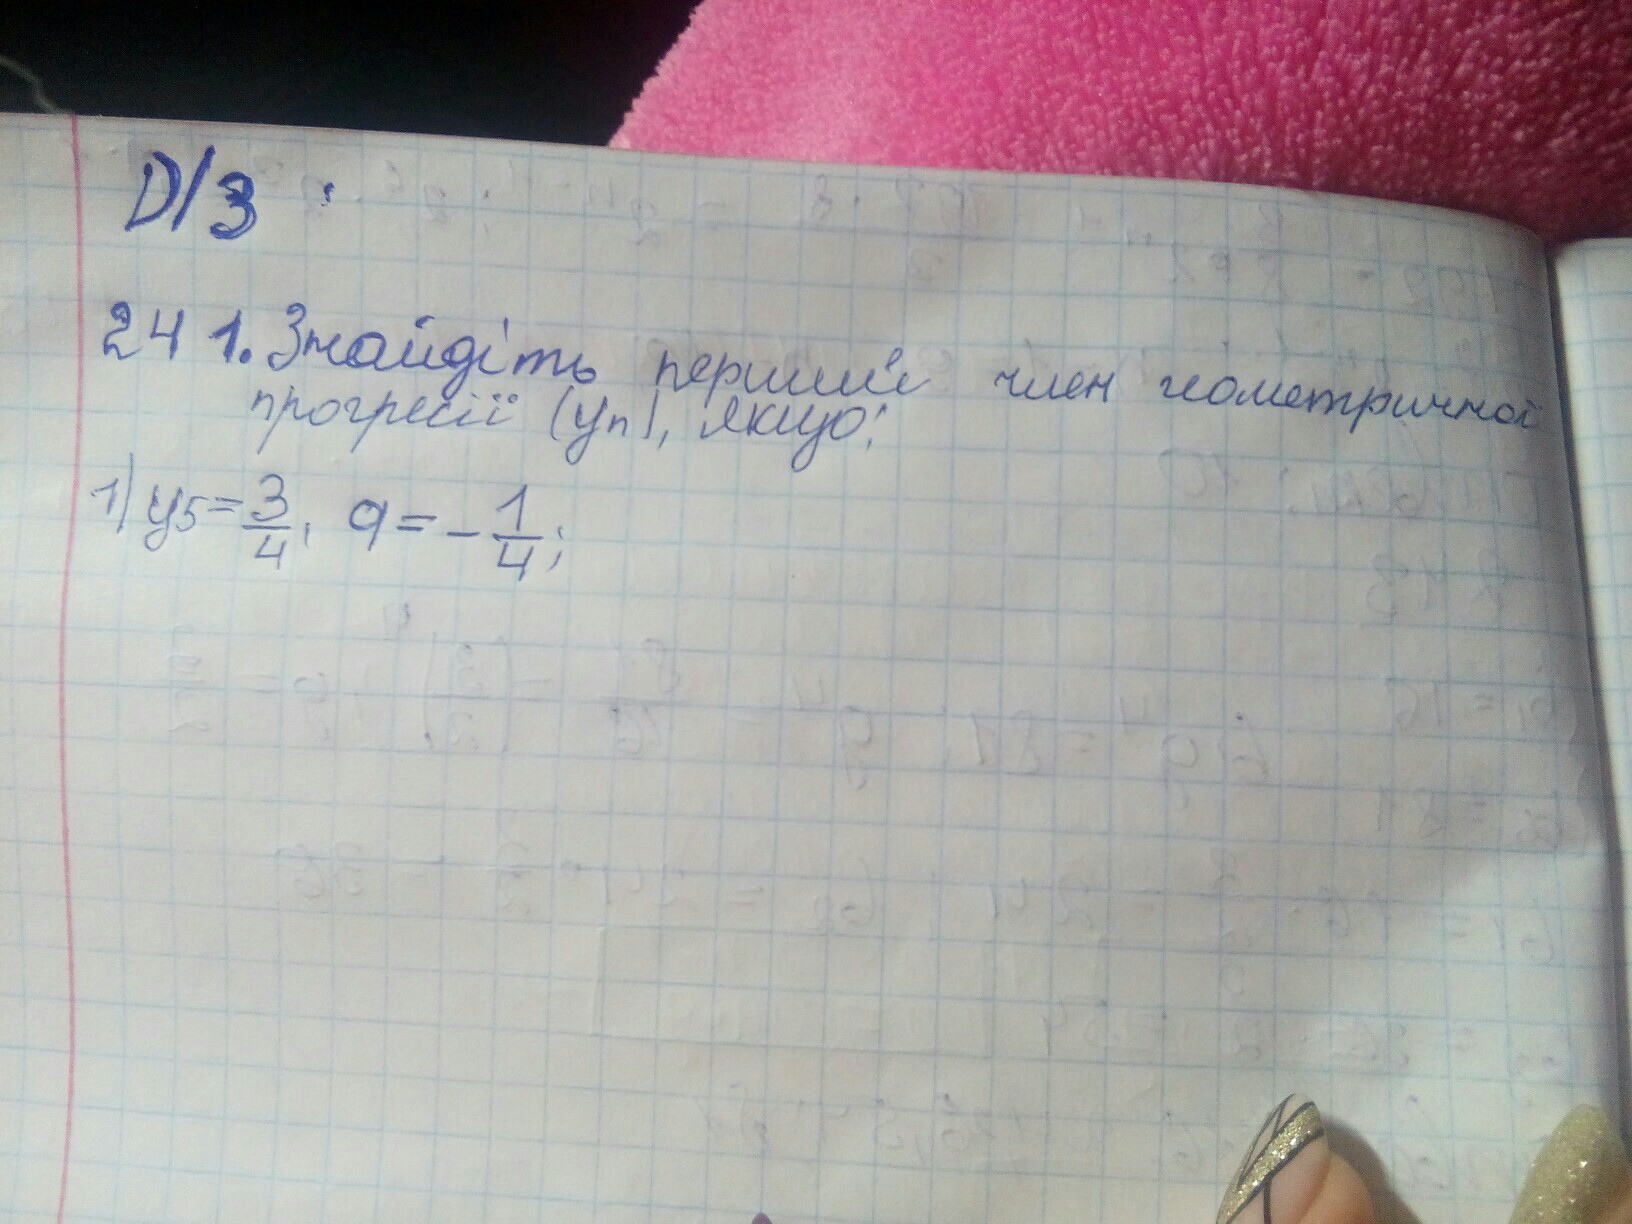 D/З:
241. Знайдіть перший член геометричної
прогресії (yn), якщо:
1) y5 = 3/4, q = - 1/4;